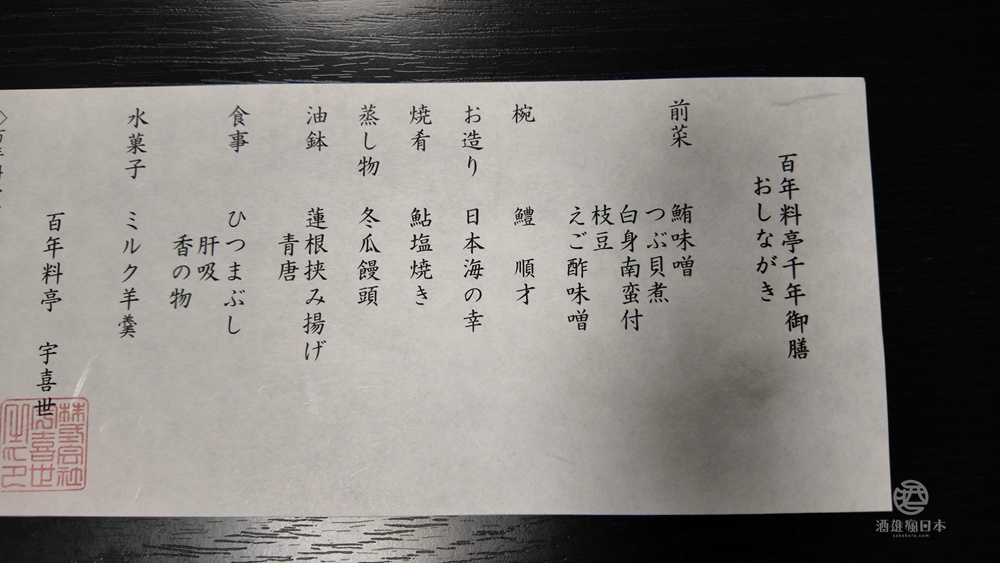 百年料亭千年御膳
おしながき
前菜 鮪味噌
つぶ貝煮
白身南蛮付
枝豆
えご酢味噌
椀 鱧 順才
お造り 日本海の幸
焼肴 鮎塩焼き
蒸し物 冬瓜饅頭
油鉢 蓮根挟み揚げ
青唐
食事 ひつまぶし
肝吸
香の物
水菓子 ミルク羊羹
百年料亭 宇喜世
株式会社
宇喜世
之印
酒雄狼日本
sakehero.com